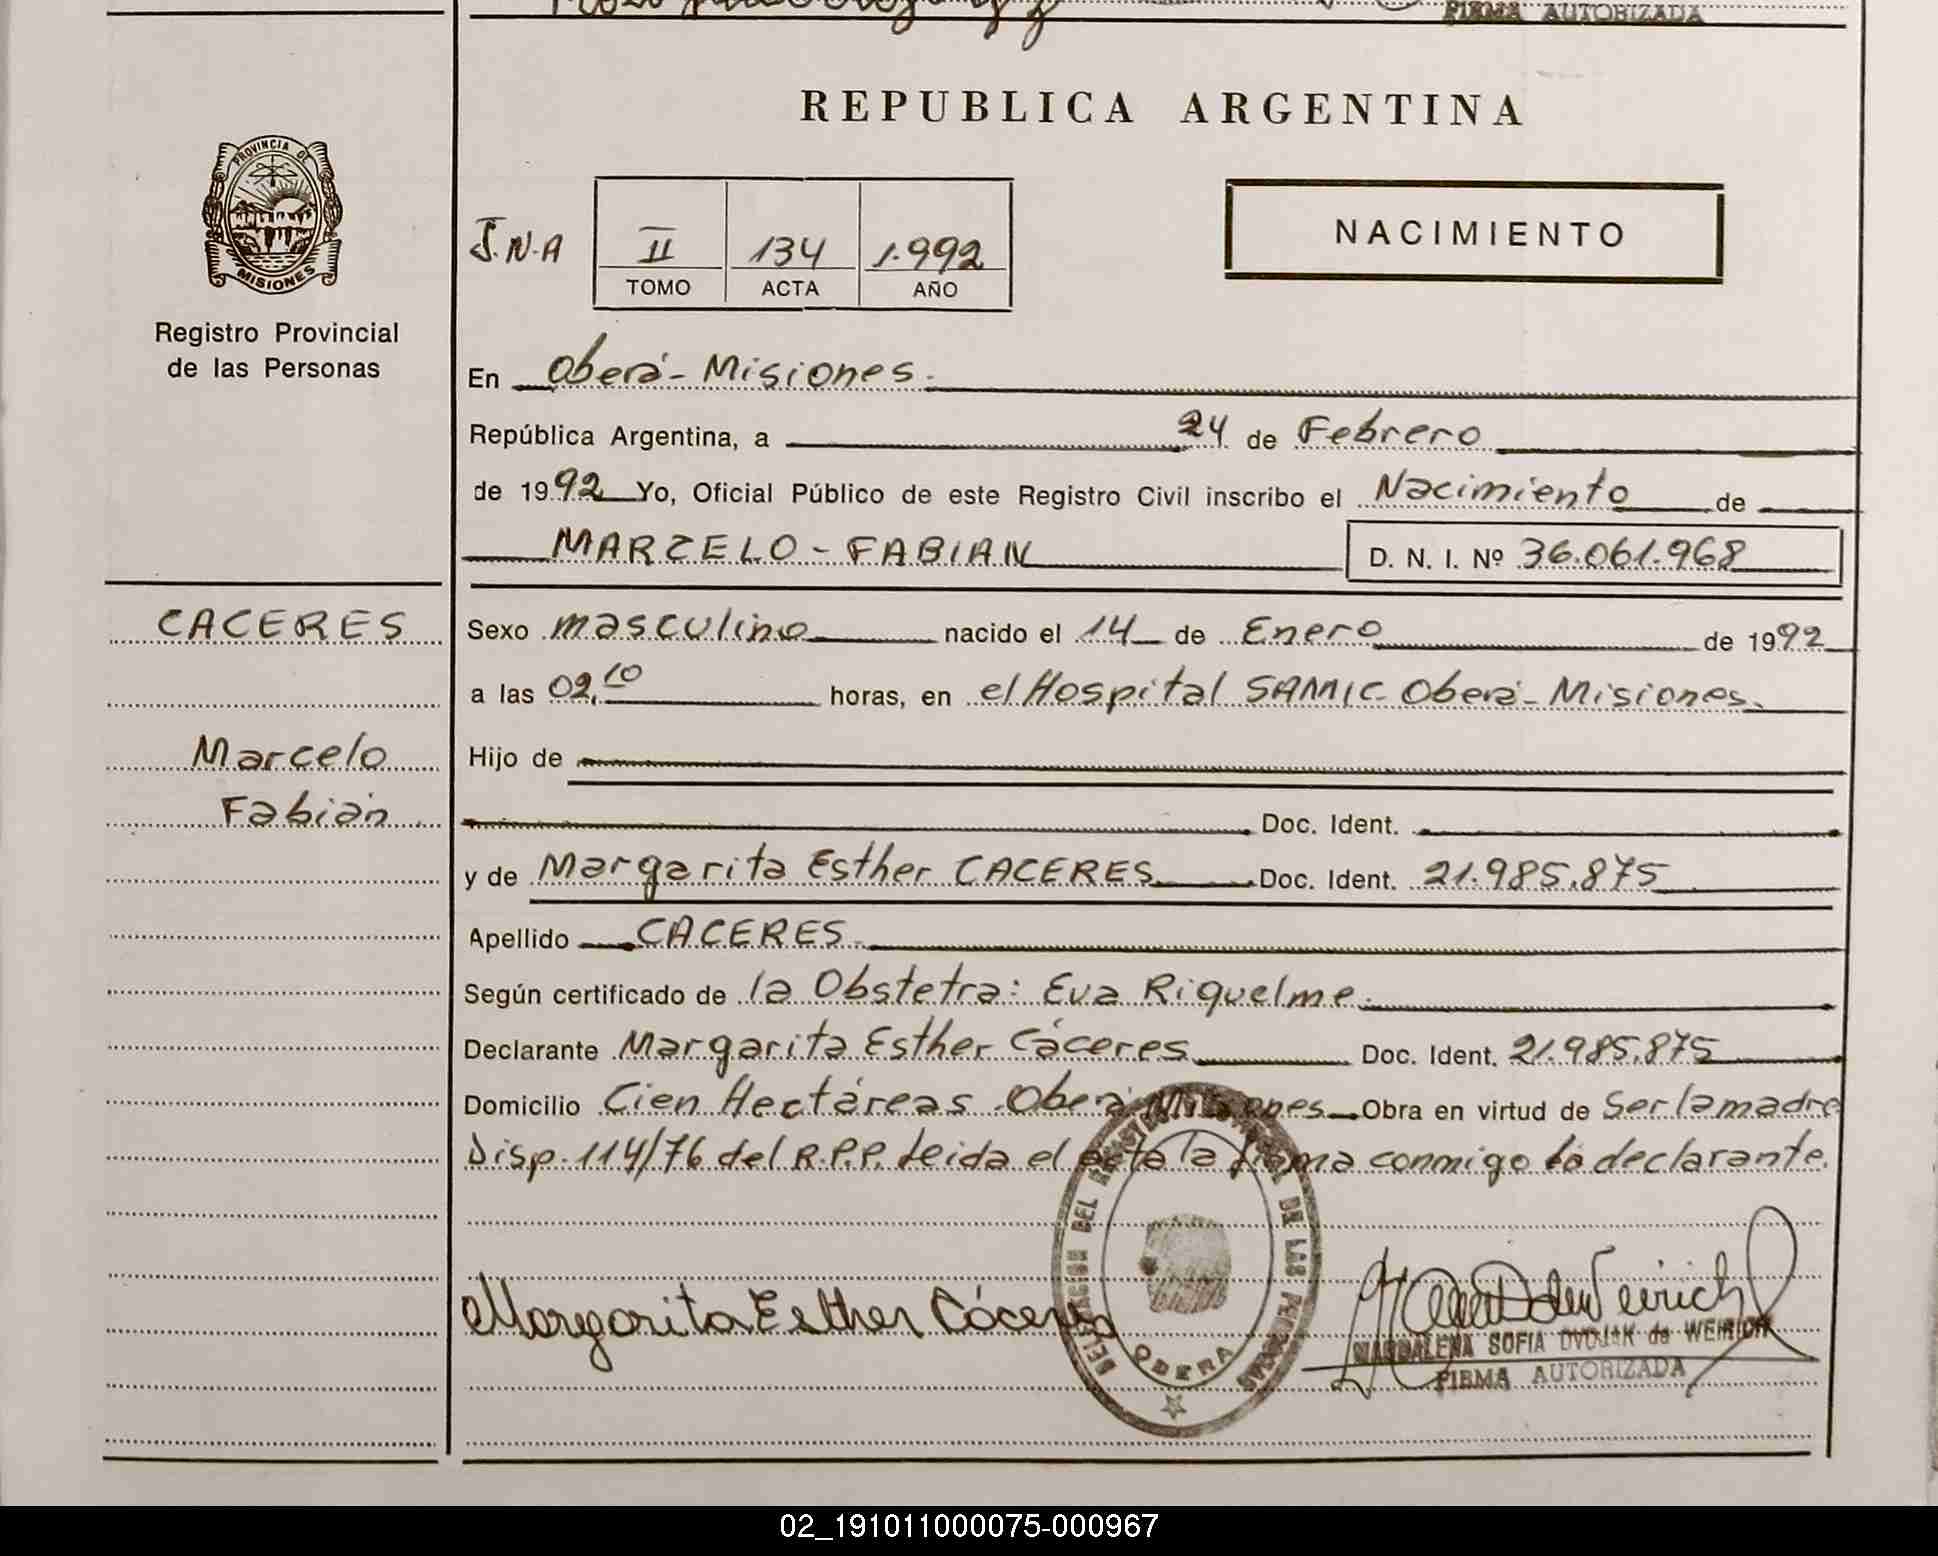 FIRMA AUTORIZADA
REPUBLICA ARGENTINA
PROVINCIA DE
MISIONES
Registro Provincial
de las Personas
J.N.A
II 134 1.992
TOMO ACTA AÑO
NACIMIENTO
En Oberá - Misiones.
República Argentina, a 24 de Febrero
de 1992 Yo, Oficial Público de este Registro Civil inscribo el Nacimiento de
MARCELO - FABIAN D. N. I. Nº 36.061.968
CACERES
Marcelo
Fabián
Sexo masculino nacido el 14 de Enero de 1992
a las 02,10 horas, en el Hospital SAMIC Oberá - Misiones.
Hijo de
Doc. Ident.
y de Margarita Esther CACERES Doc. Ident. 21.985.875
Apellido CACERES
Según certificado de la Obstetra: Eva Riquelme.
Declarante Margarita Esther Cáceres Doc. Ident. 21.985.875
Domicilio Cien Hectáreas Oberá Misiones Obra en virtud de Ser la madre
Disp. 114/76 del R.P.P. Leida el acta la firma conmigo la declarante.
Margarita Esther Cáceres
DELEGACION DEL REGISTRO PROVINCIAL DE LAS PERSONAS
OBERA
MAGDALENA SOFIA DVORAK de WEIRICH
FIRMA AUTORIZADA
02_191011000075-000967